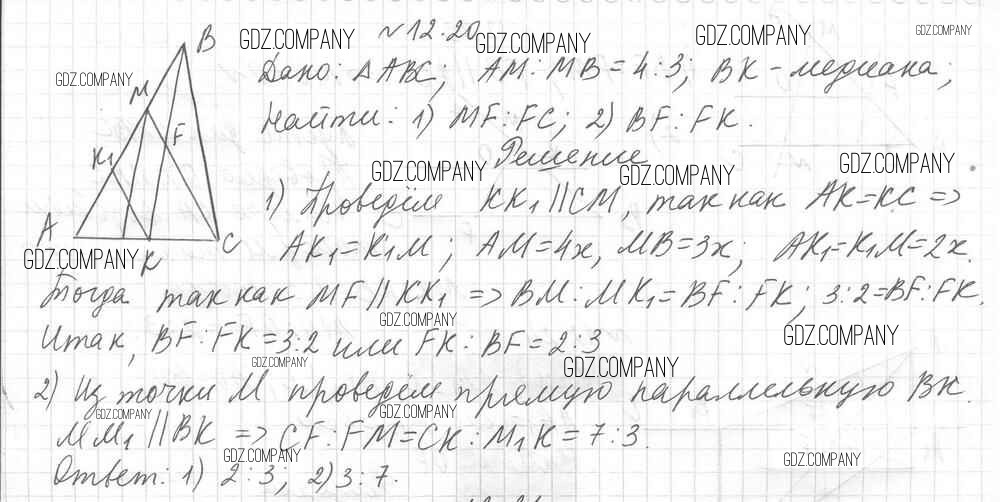 B GDZ.COMPANY №12.20 GDZ.COMPANY GDZ.COMPANY GDZ.COMPANY
GDZ.COMPANY Дано: △ABC; AM:MB=4:3; BK-медиана;
M
F Найти: 1) MF:FC; 2) BF:FK.
K₁ GDZ.COMPANY Решение GDZ.COMPANY GDZ.COMPANY
1) Проведём KK₁∥CM, так как AK=KC =>
A C AK₁=K₁M; AM=4x, MB=3x; AK₁=K₁M=2x.
GDZ.COMPANY K
Тогда так как MF∥KK₁ => BM:MK₁=BF:FK; 3:2=BF:FK.
GDZ.COMPANY GDZ.COMPANY
Итак, BF:FK=3:2 или FK:BF=2:3
GDZ.COMPANY GDZ.COMPANY
2) Из точки M проведём прямую параллельную BK.
GDZ.COMPANY GDZ.COMPANY
MM₁∥BK => CF:FM=CK:M₁K=7:3.
GDZ.COMPANY GDZ.COMPANY
Ответ: 1) 2:3; 2) 3:7.